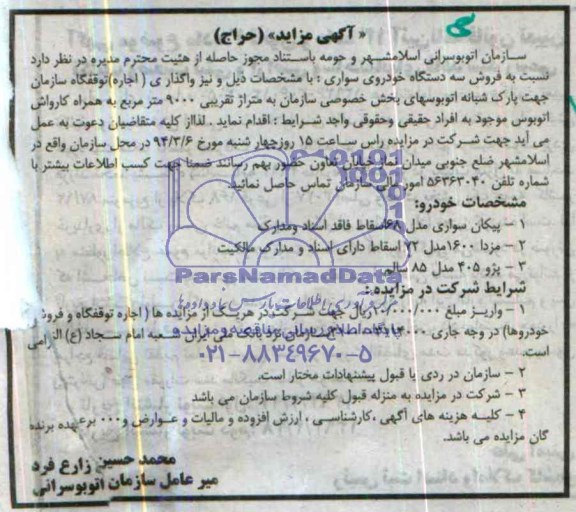 « آگهی مزایده» (حراج)
سازمان اتوبوسرانی اسلامشهر و حومه باستناد مجوز حاصله از هئیت محترم مدیره در نظر دارد
نسبت به فروش سه دستگاه خودروی سواری : با مشخصات ذیل و نیز واگذاری ( اجاره)توقفگاه سازمان
جهت پارک شبانه اتوبوسهای بخش خصوصی سازمان به متراژ تقریبی ۹۰۰۰ متر مربع به همراه کارواش
اتوبوس موجود به افراد حقیقی وحقوقی واجد شرایط : اقدام نماید . لذااز کلیه متقاضیان دعوت به عمل
می آید جهت شرکت در مزایده راس ساعت ۱۵ روزچهار شنبه مورخ ۹۴/۳/۶ در محل سازمان واقع در
اسلامشهر ضلع جنوبی میدان نماز خیابان تعاون حضور بهم رسانند ضمنا جهت کسب اطلاعات بیشتر با
شماره تلفن ۵۶۳۶۳۰۴۰ امور مالی سازمان تماس حاصل نمائید.
مشخصات خودرو:
۱ – پیکان سواری مدل ۶۸ اسقاط فاقد اسناد ومدارک
۲ – مزدا ۱۶۰۰مدل ۷۲ اسقاط دارای اسناد و مدارک مالکیت
۳ – پژو ۴۰۵ مدل ۸۵ سالم
ParsNamadData
شرایط شرکت در مزایده:
۱ – واریز مبلغ ۱۰/۰۰۰/۰۰۰ریال جهت شرکت در هریک از مزایده ها ( اجاره توقفگاه و فروش
خودروها) در وجه جاری سازمان نزد بانک ملی ایران شعبه امام سجاد (ع) الزامی
است.
۰۲۱-۸۸۳۴۹۶۷۰-۵
۲ – سازمان در ردی یا قبول پیشنهادات مختار است.
۳ – شرکت در مزایده به منزله قبول کلیه شروط سازمان می باشد
۴ – کلیه هزینه های آگهی ،کارشناسی ، ارزش افزوده و مالیات و عوارض و۰۰۰ برعهده برنده
گان مزایده می باشد.
محمد حسین زارع فرد
میر عامل سازمان اتوبوسرانی